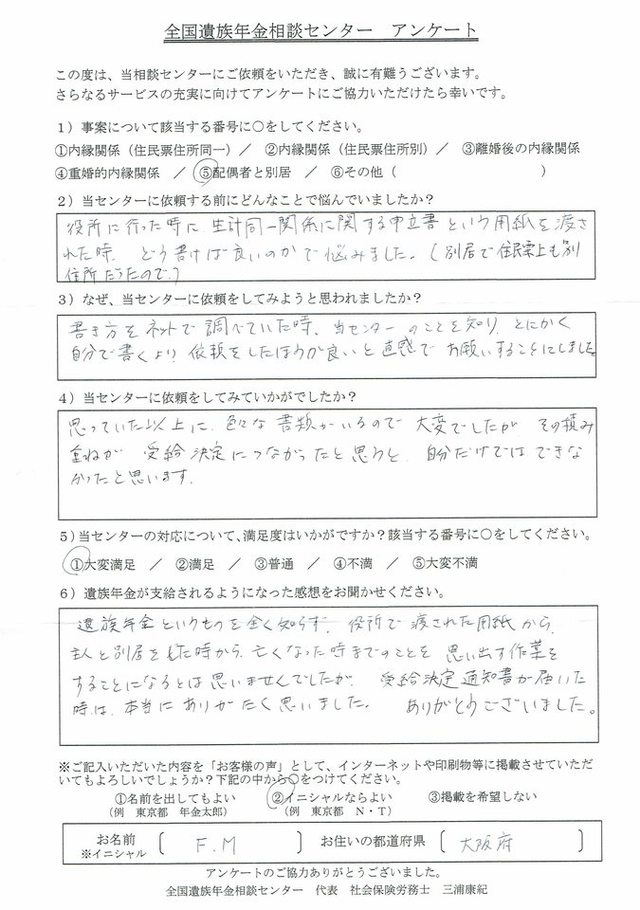 全国遺族年金相談センター　アンケート
この度は、当相談センターにご依頼をいただき、誠に有難うございます。
さらなるサービスの充実に向けてアンケートにご協力いただけたら幸いです。
1）事案について該当する番号に○をしてください。
①内縁関係（住民票住所同一）／　②内縁関係（住民票住所別）／　③離婚後の内縁関係
④重婚的内縁関係　／　⑤配偶者と別居　／　⑥その他（　　　　　　　　　　）
2）当センターに依頼する前にどんなことで悩んでいましたか？
役所に行った時に 生計同一関係に関する申立書 という用紙を渡さ
れた時、どう書けば良いのかで悩みました。（別居で住民票上も別
住所だったので。）
3）なぜ、当センターに依頼をしてみようと思われましたか？
書き方をネットで調べていた時、当センターのことを知り、とにかく
自分で書くより 依頼をしたほうが良いと直感で お願いすることにしました
4）当センターに依頼をしてみていかがでしたか？
思っていた以上に、色々な書類がいるので 大変でしたが その積み
重ねが 受給決定につながったと思うと、自分だけでは できな
かったと思います。
5）当センターの対応について、満足度はいかがですか？該当する番号に○をしてください。
①大変満足　／　②満足　／　③普通　／　④不満　／　⑤大変不満
6）遺族年金が支給されるようになった感想をお聞かせください。
遺族年金というものを全く知らず、役所で渡された用紙から、
主人と別居をした時から、亡くなった時までのことを 思い出す作業を
することになるとは思いませんでしたが、受給決定通知書が届いた
時は、本当に ありがたく思いました。 ありがとうございました。
※ご記入いただいた内容を「お客様の声」として、インターネットや印刷物等に掲載させていただ
いてもよろしいでしょうか？下記の中から○をつけてください。
①名前を出してもよい　②イニシャルならよい　③掲載を希望しない
（例　東京都　年金太郎）　（例　東京都　N・T）
お名前　〔　F.M　〕　お住いの都道府県　〔　大阪府　〕
※イニシャル
アンケートのご協力ありがとうございました。
全国遺族年金相談センター　代表　社会保険労務士　三浦康紀